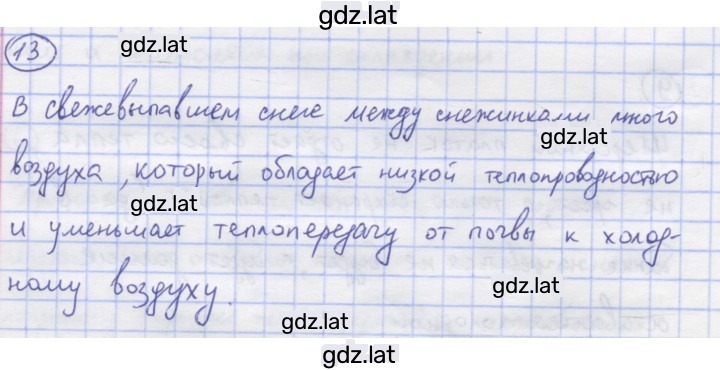 gdz.lat
13
gdz.lat
В свежевыпавшем снеге между снежинками много
gdz.lat
воздуха, который обладает низкой теплопроводностью
gdz.lat
и уменьшает теплопередачу от почвы к холод-
ному воздуху.
gdz.lat
gdz.lat
gdz.lat